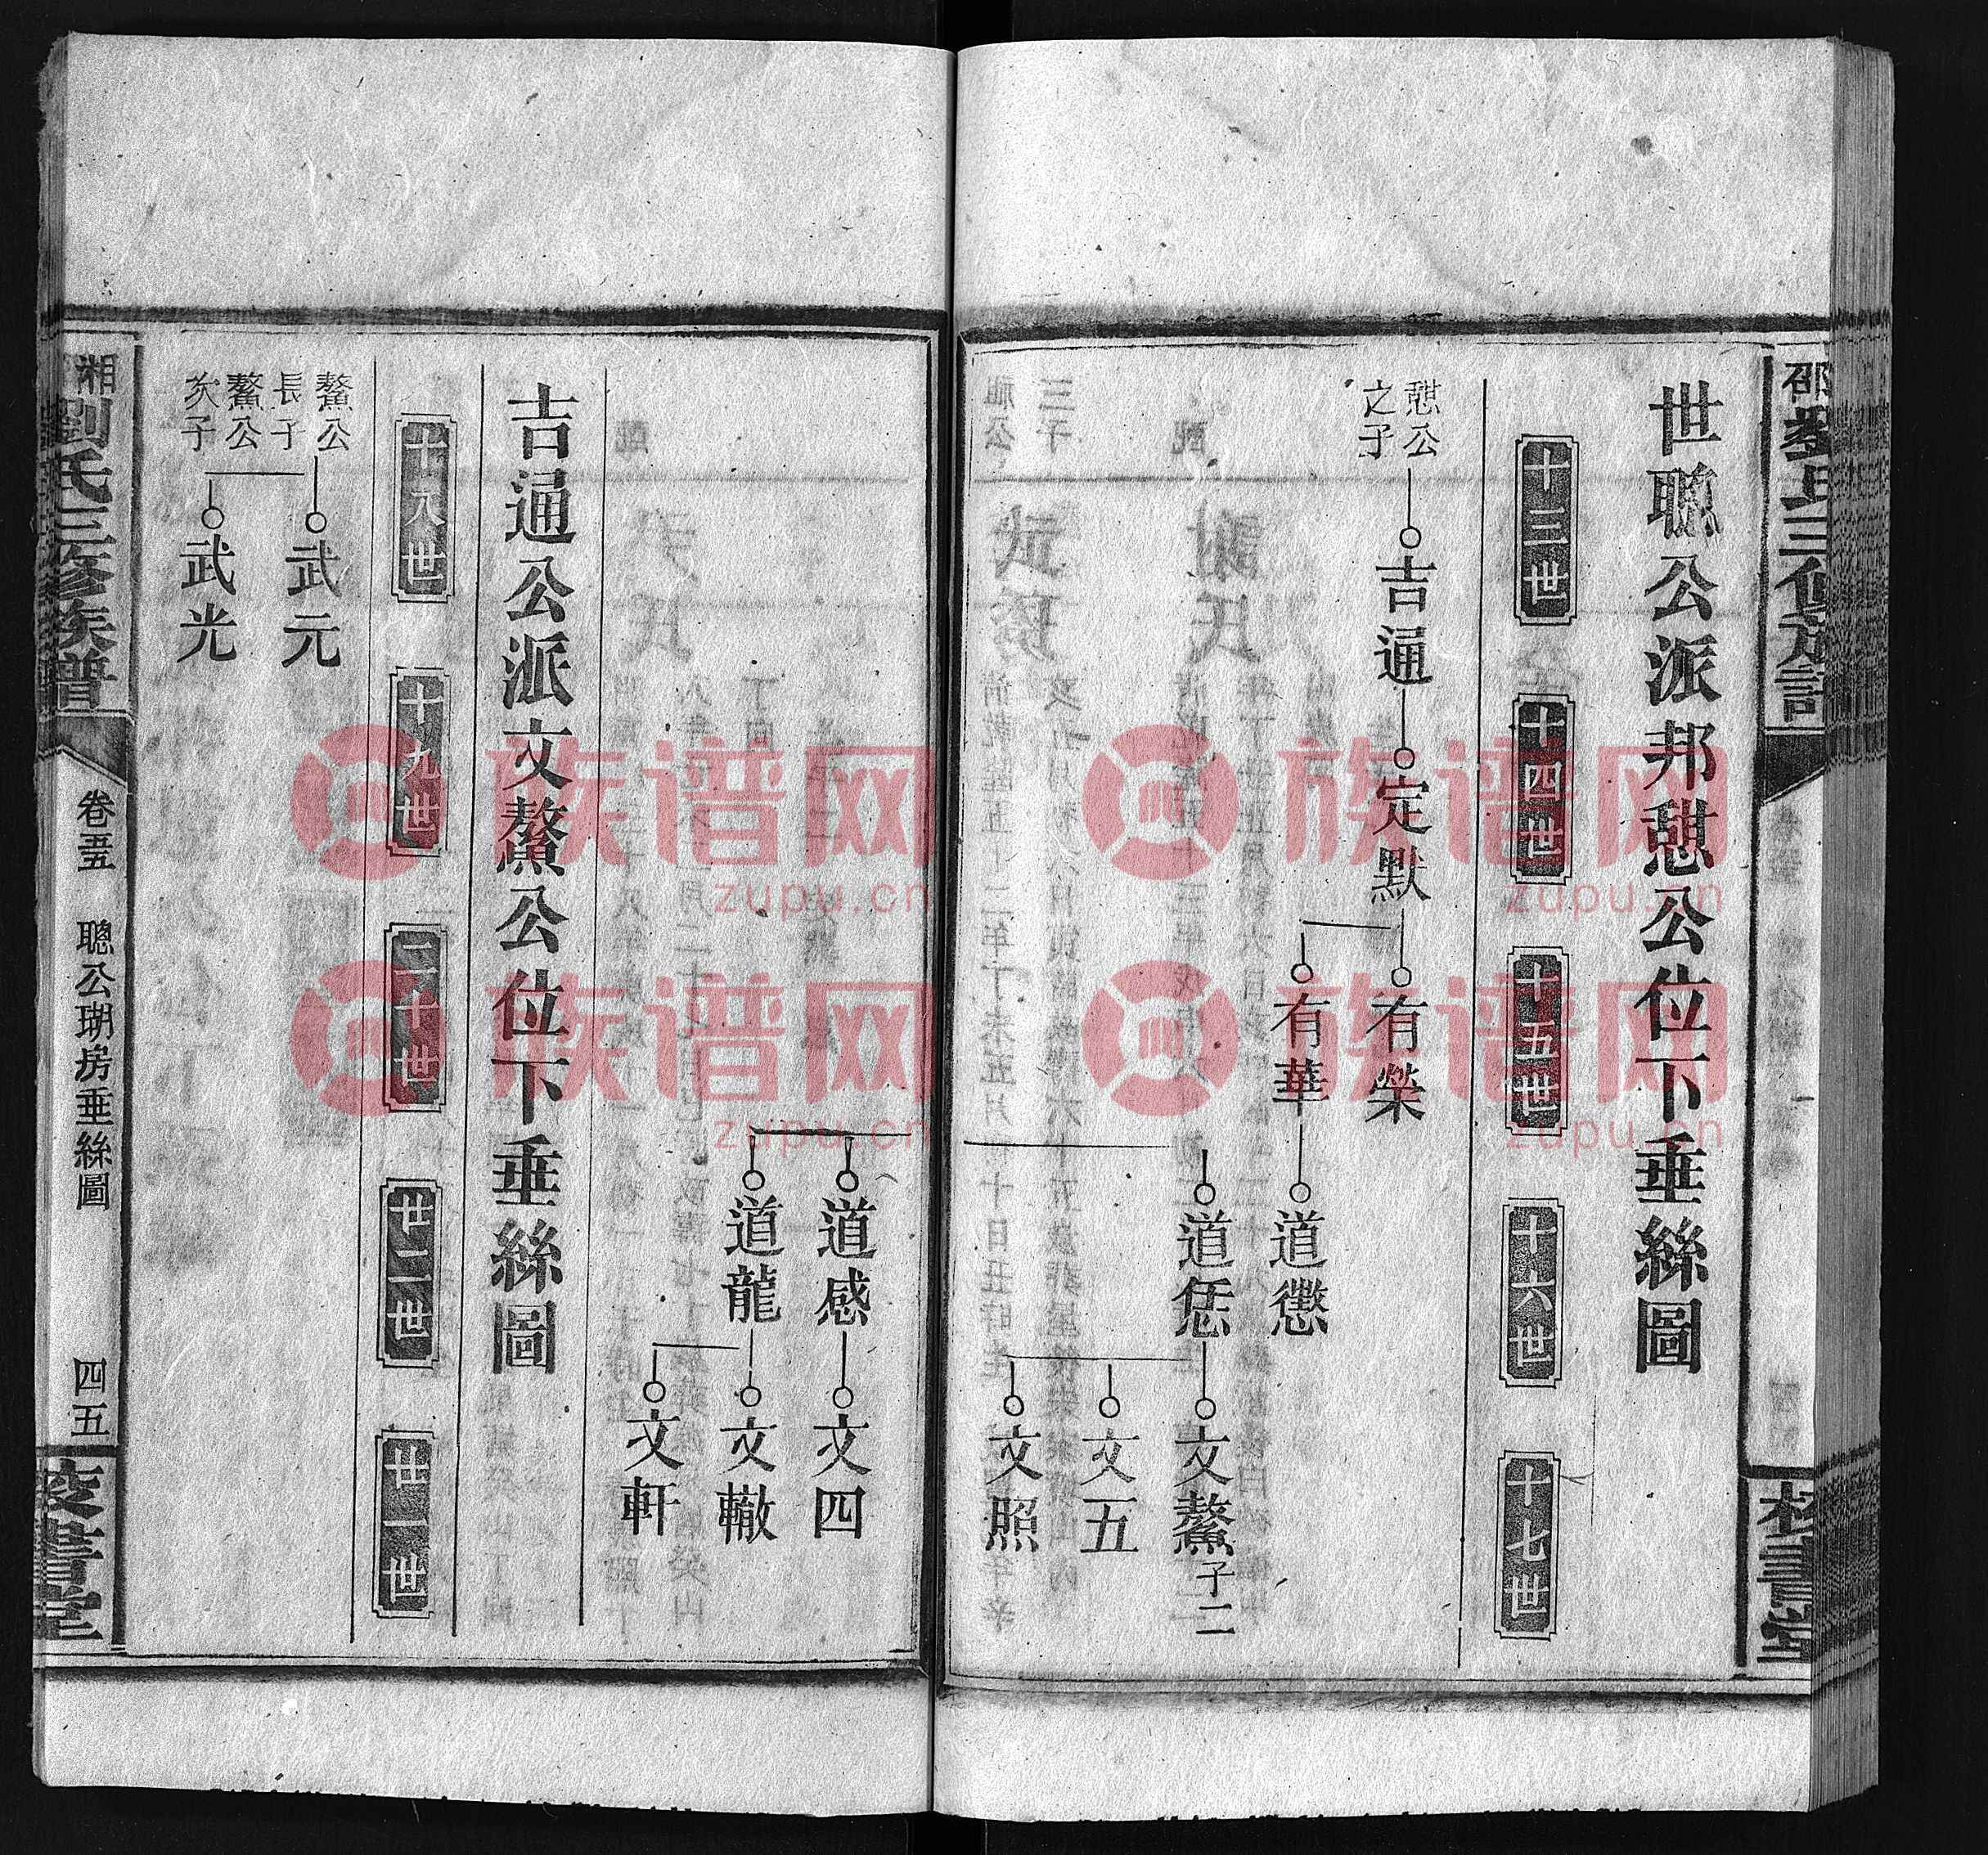 世聰公派邦憇公位下垂絲圖
十三世
十四世
十五世
十六世
十七世
憇公
之子
吉通
定默
有榮
有華
道懲
道恁
文鰲子二
文五
文照
道感
文四
道龍
文轍
文軒
吉通公派文鰲公位下垂絲圖
十八世
十九世
二十世
廿一世
鰲公
長子
武元
鰲公
次子
武光
劉氏三修族譜
卷五
聰公瑚房垂絲圖
四五
族谱网
zupu.cn
族谱网
zupu.cn
族谱网
zupu.cn
族谱网
zupu.cn